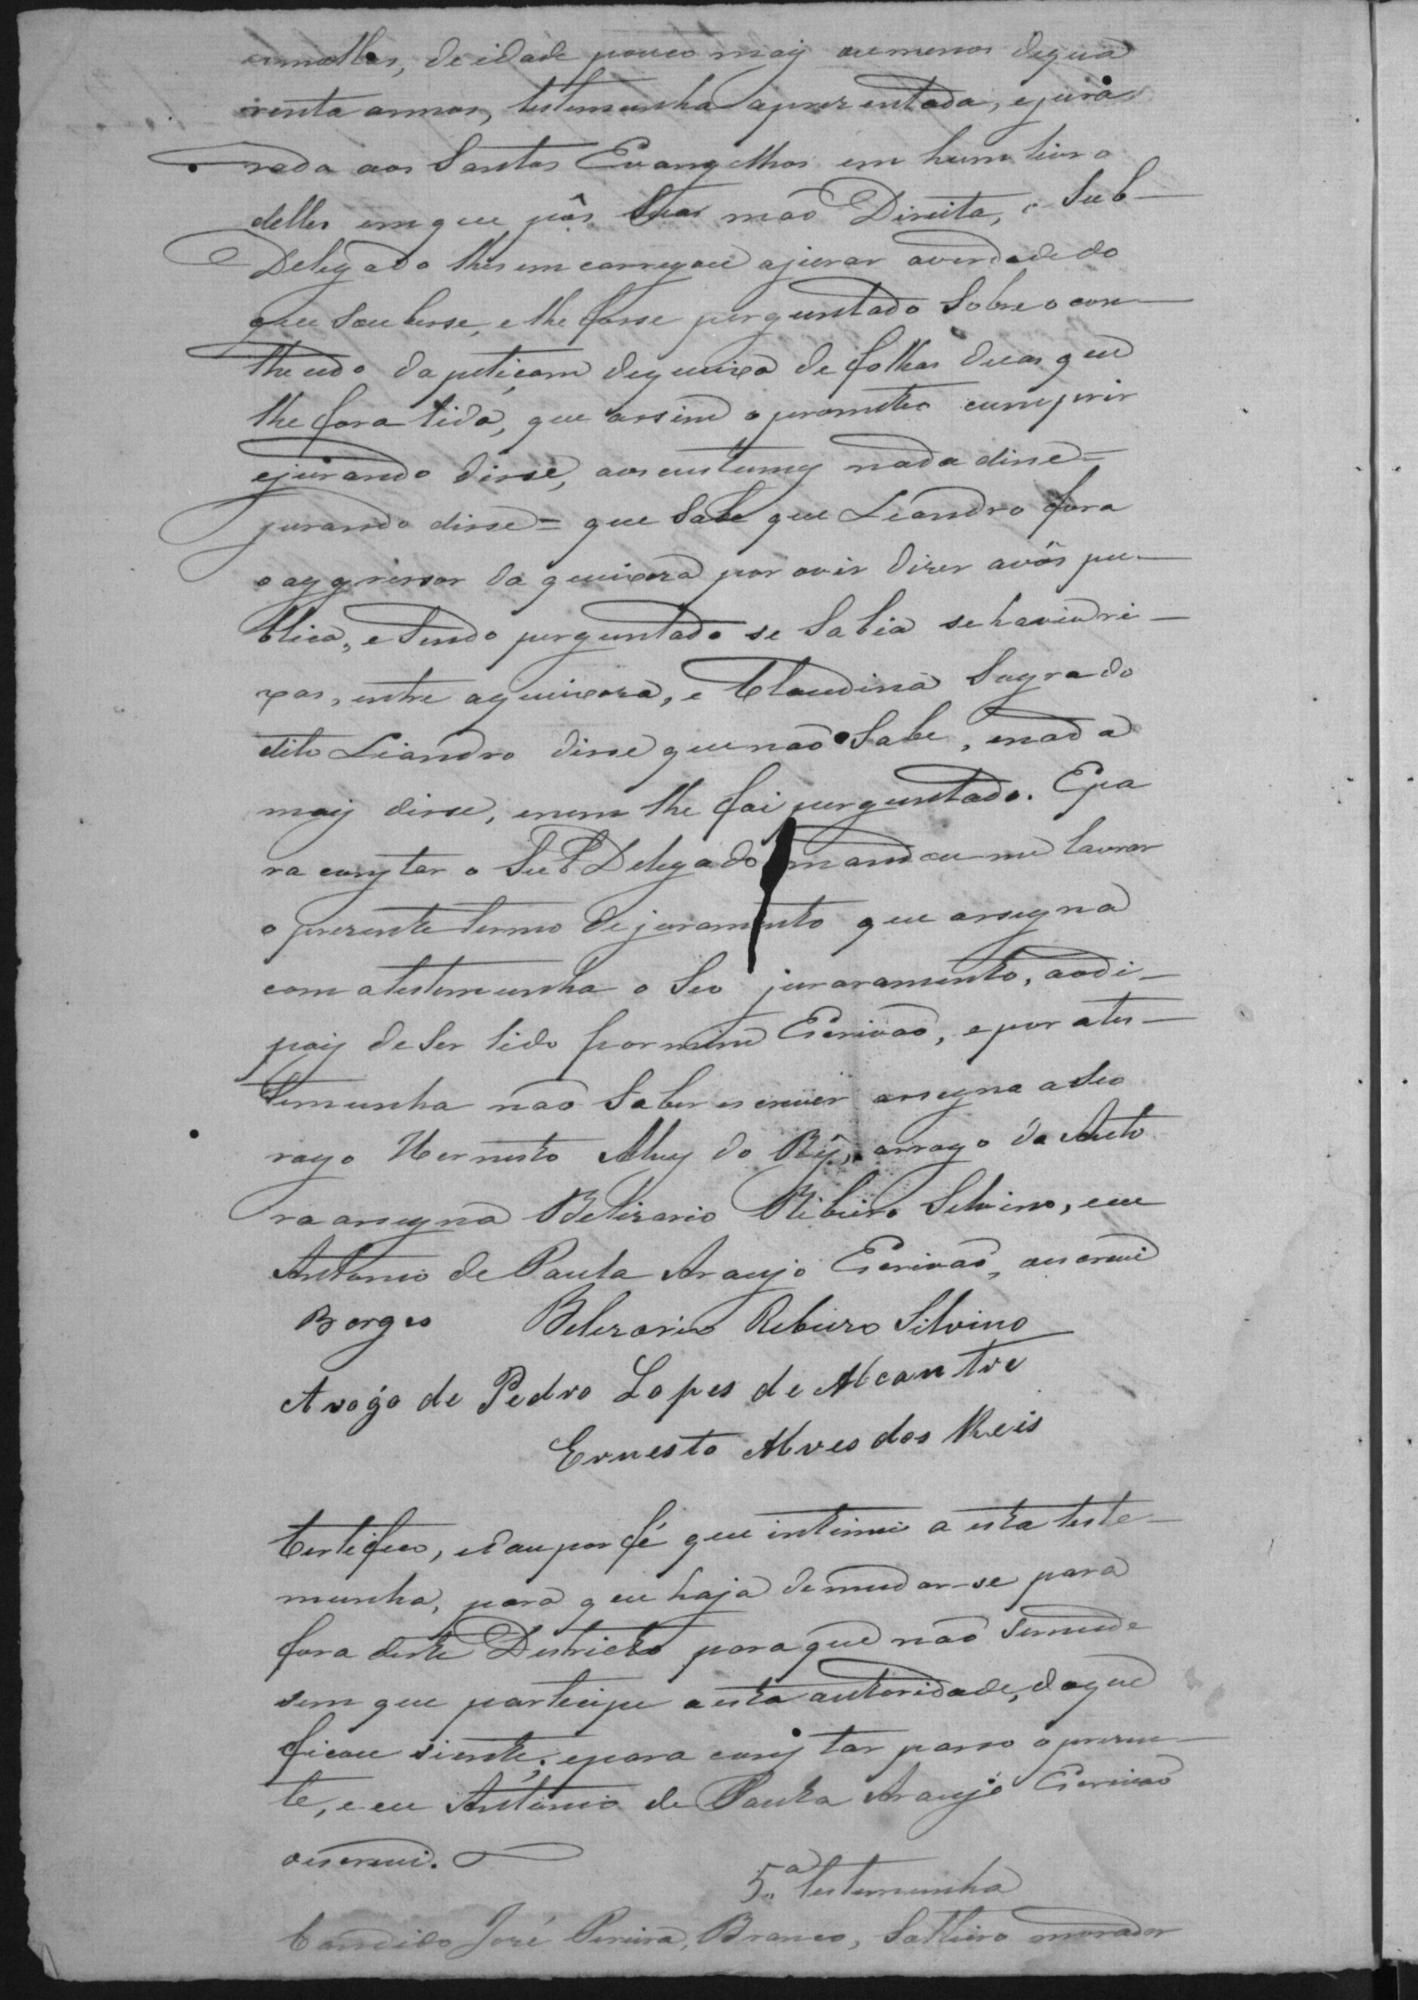 de idade pouco mais ou menos de qua
renta annos, testemunha aprezentada, ejura
rada aos Santos Evangelhos em hum livro
delles emque pôs Sua mão Direita, o Sub-
Delegado lhe emcarregou ajurar averdade do
que Souberse, e lhe fosse perguntado Sobre o con-
theudo dapetiçam dequeixa de folhas duas que
lhe fora lida, que assim o prometeo cumprir
ejurando disse, aoscustumes nada disse=
jurando disse= que Sabe que Leandro fora
o aggressor da queixoza por ovir dizer avôs pu-
blica, e Sendo perguntado se Sabia sehavia ri-
xas, entre aqueixoza, e Claudina Sogra do
dito Liandro disse que não Sabe, enada
mais disse, enem lhe foi perguntado. Epa
ra constar o Sub Delegado mandou-me lavrar
o prezente termo dejuramento que assigna
com atestemunha o Seo juraramento, aodi-
pois de Ser lido por mim Escrivão, e por ates-
temunha não Saber escrever assigna a Seo
rogo Hernesto Alves do Reis, arrogo da Auto
ra assigna Belizario Ribeiro Silvino, eeu
Antonio de Paula Araujo Escrivão, oescrevi
Borges Belizario Ribeiro Silvino
Arogo de Pedro Lopes de Alcantre
Ernesto Alves dos Reis
Certifico, edou por fé que intimei a esta teste-
munha, para que haja demudar-se para
fora deste Districto para que não semude
sem que participe a esta autoridade, doque
ficou siente; epara constar passo o prezen-
te, e eu Antonio de Paula Araujo Escrivão
oescrevi.
5.ª testemunha
Candido José Pereira, Branco, Solteiro morador